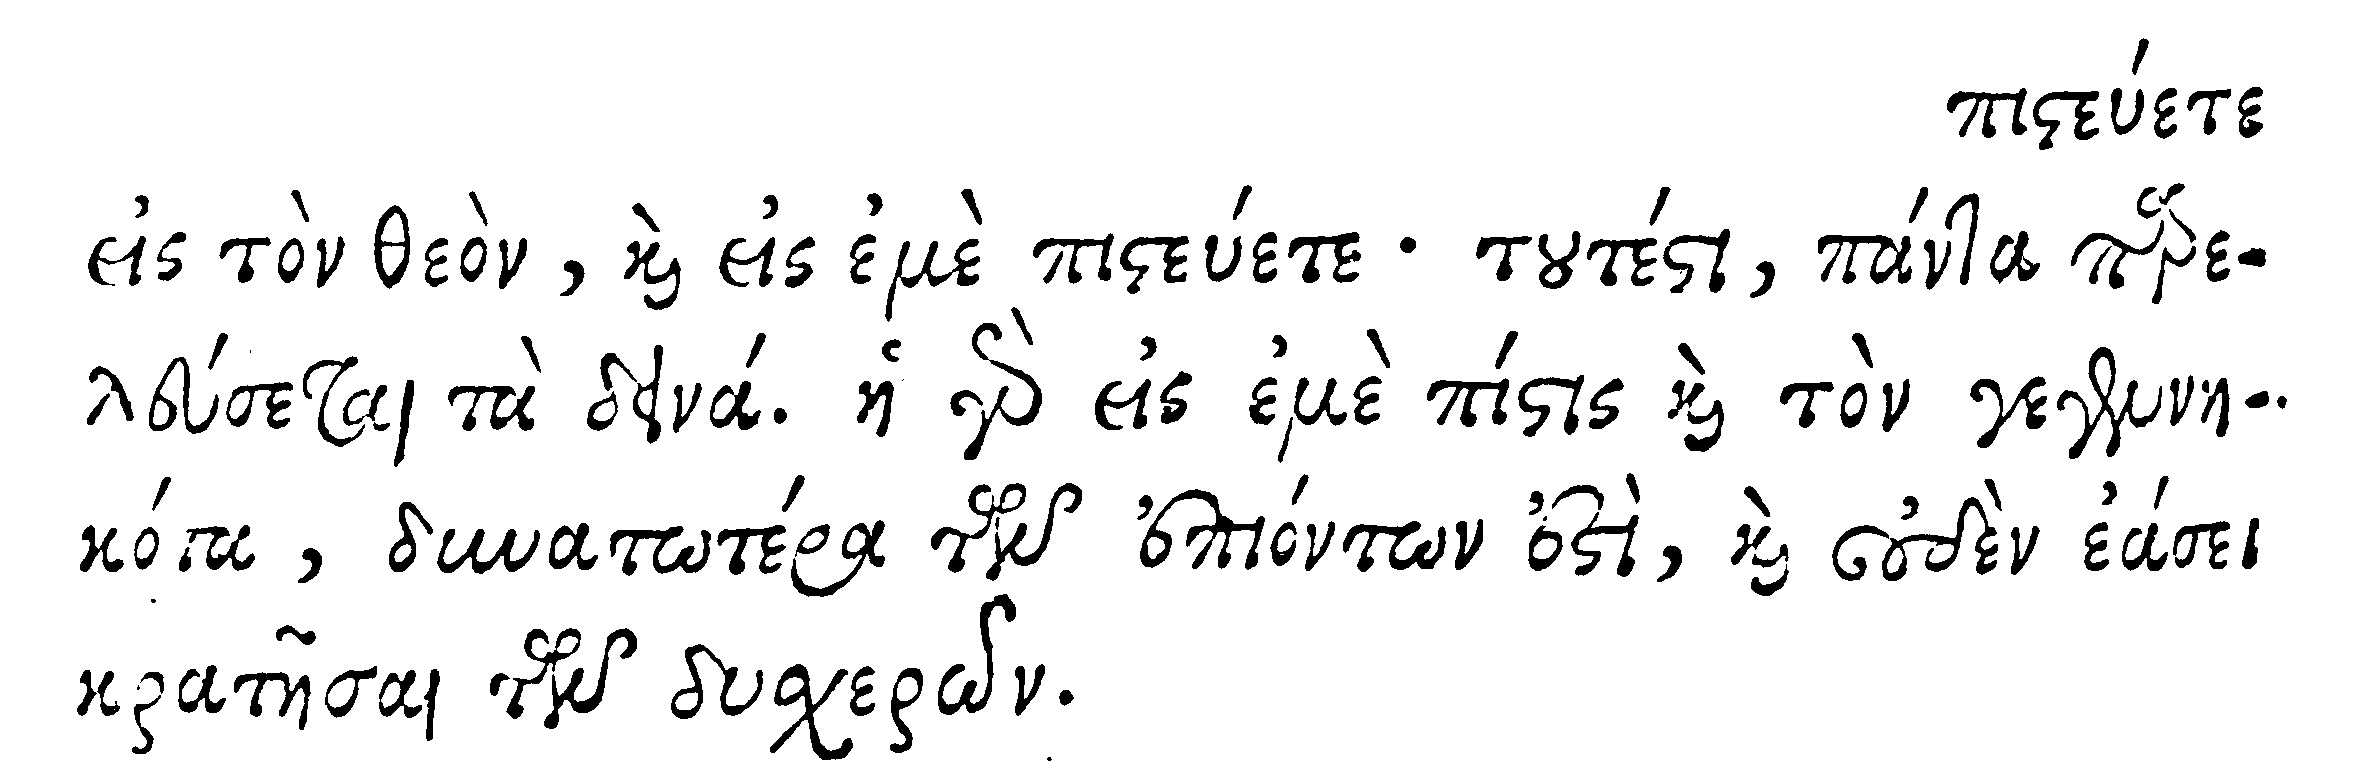 πιστεύετε
εἰς τὸν θεὸν, καὶ εἰς ἐμὲ πιστεύετε· τουτέστι, πάντα παρε-
λεύσεται τὰ δεινά. ἡ γὰρ εἰς ἐμὲ πίστις καὶ τὸν γεγεννη-
κότα, δυνατωτέρα τῶν ἐπιόντων ἐστὶ, καὶ οὐδὲν ἐάσει
κρατῆσαι τῶν δυσχερῶν.